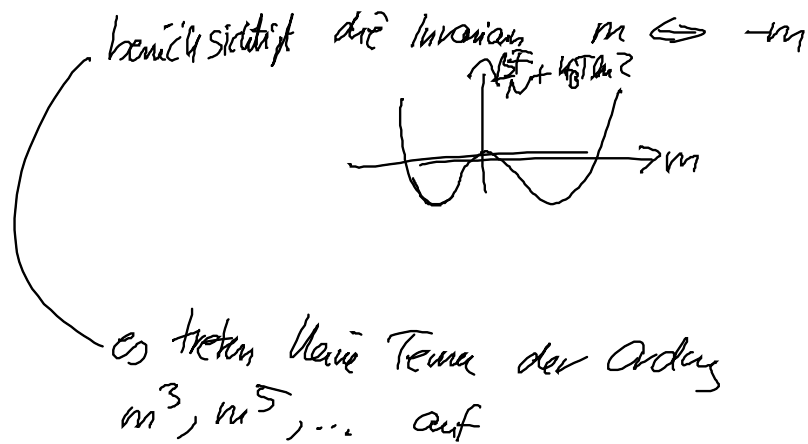 berücksichtigt die Invarianz m ⇔ -m
βF/N + k_BT ln 2
m
es treten keine Terme der Ordng
m³, m⁵, ... auf